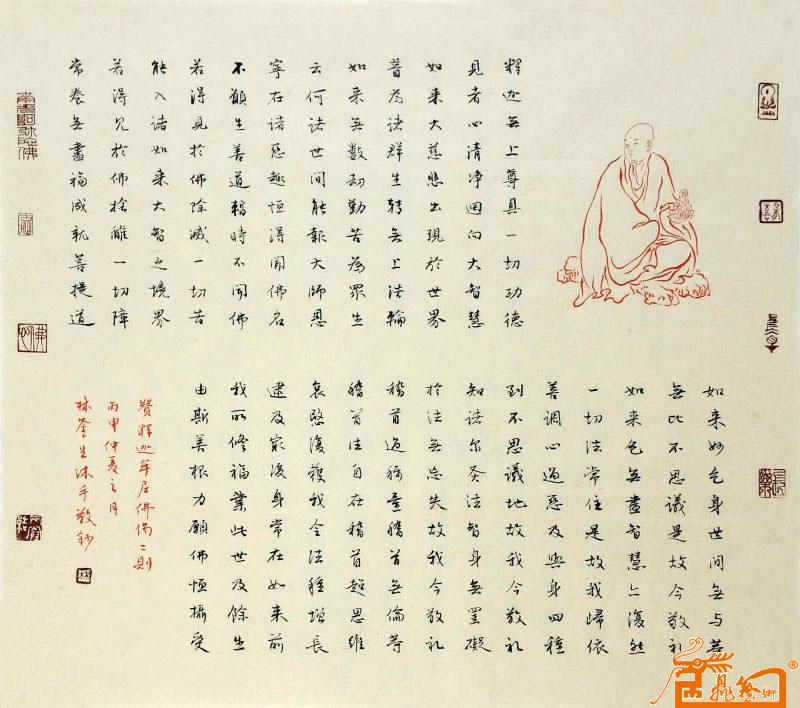 釋迦無上尊具一切功德
見者心清淨迴向大智慧
如来大慈悲出現於世界
普為諸群生轉無上法輪
如来無數劫勤苦為眾生
云何諸世間能報大師恩
寧在諸惡趣恒得聞佛名
不願生善道暫時不聞佛
若得見於佛除滅一切苦
能入諸如来大智之境界
若得見於佛捨離一切障
常養無盡福成就菩提道
如来妙色身世間無与等
無比不思議是故今敬礼
如来色無盡智慧亦復然
一切法常住是故我歸依
善調心過惡及與身四種
到不思議地故我今敬礼
知諸尔炎法智身無罣礙
於法無忘失故我今敬礼
稽首過稱量稽首無倫等
稽首法自在稽首超思維
哀愍復護我令法種增長
逮及最後身常在如来前
我所修福業此世及餘生
由斯善根力願佛恒攝受
贊釋迦牟尼佛偈二則
丙申仲夏之月
林荃生沐手敬鈔
南無阿弥陀佛